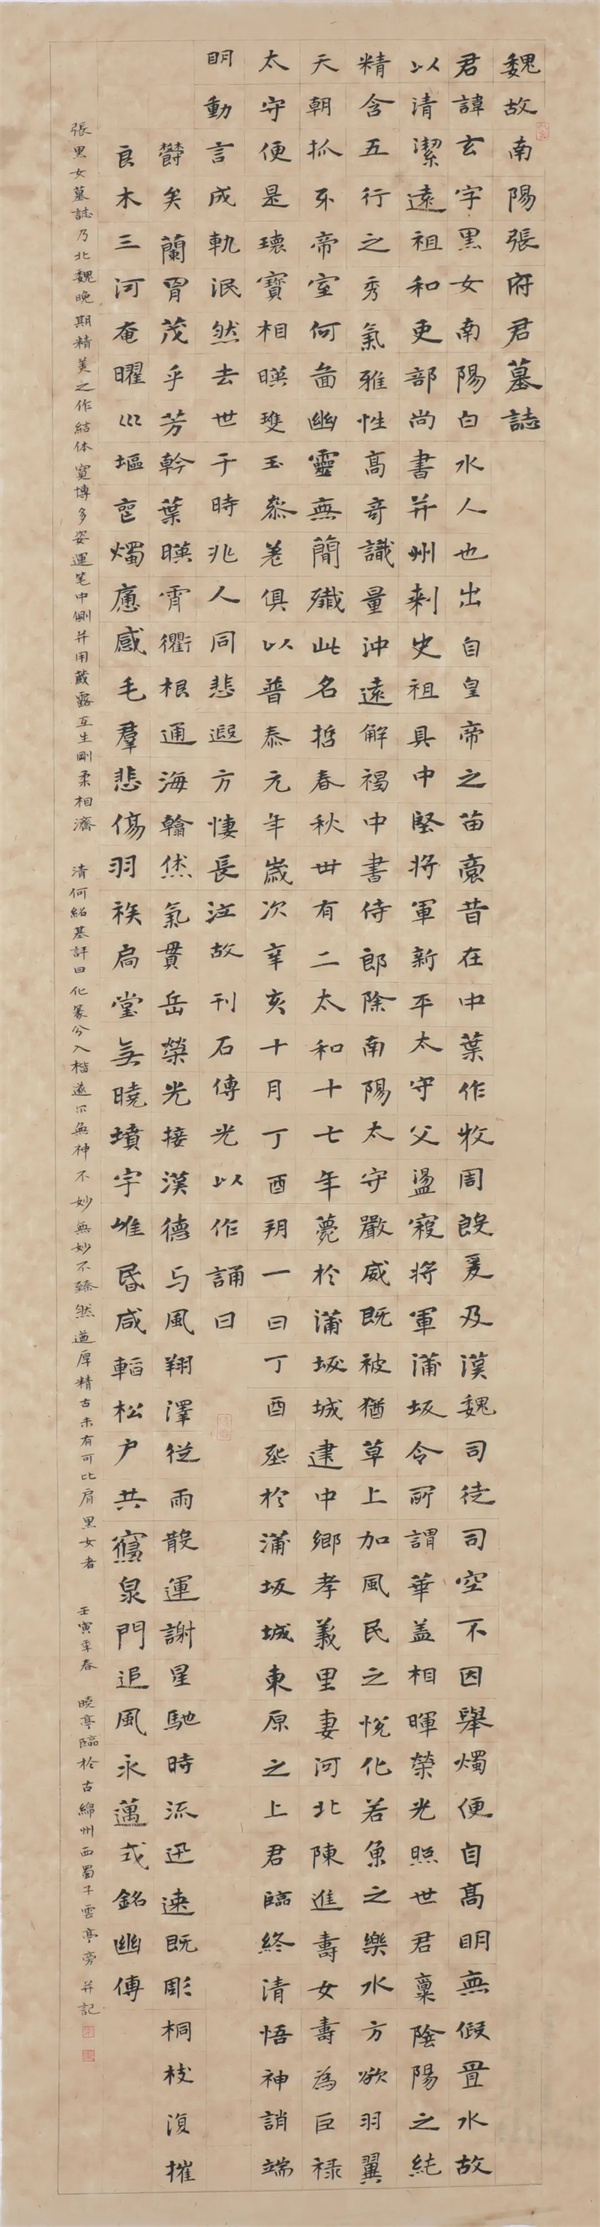 魏故南陽張府君墓誌
君諱玄字黑女南陽白水人也出自皇帝之苗裔昔在中葉作牧周殷爰及漢魏司徒司空不因舉燭便自高明無假置水故
以清潔遠祖和吏部尚書并州刺史祖具中堅將軍新平太守父盪寇將軍蒲坂令所謂華蓋相暉榮光照世君稟陰陽之純
精含五行之秀氣雅性高奇識量沖遠解褐中書侍郎除南陽太守嚴威既被猶草上加風民之悅化若魚之樂水方欲羽翼
天朝抓牙帝室何啚幽靈無簡殲此名哲春秋卅有二太和十七年薨於蒲坂城建中鄉孝義里妻河北陳進壽女壽為巨祿
太守便是瓌寶相暎雙玉參差俱以普泰元年歲次辛亥十月丁酉朔一日丁酉塟於蒲坂城東原之上君臨終清悟神誚端
明動言成軌泯然去世于時兆人同悲遐方悽長泣故刊石傳光以作誦曰
欝矣蘭胄茂乎芳幹葉暎霄衢根通海翰倐氣貫岳榮光接漢德与風翔澤從雨散運謝星馳時流迅速既彫桐枝復摧
良木三河奄曜巛塸㐫燭慝感毛羣悲傷羽族扃堂無曉墳宇唯昏咸韜松戶共寱泉門追風永邁式銘幽傳
張黑女墓誌乃北魏晚期精美之作結体寬博多姿運笔中側并用藏露互生剛柔相濟 清何紹基評曰化篆分入楷遂尔無神不妙無妙不臻然遒厚精古未有可比肩黑女者 壬寅年春 曉亭臨於古綿州西蜀子雲亭旁并記